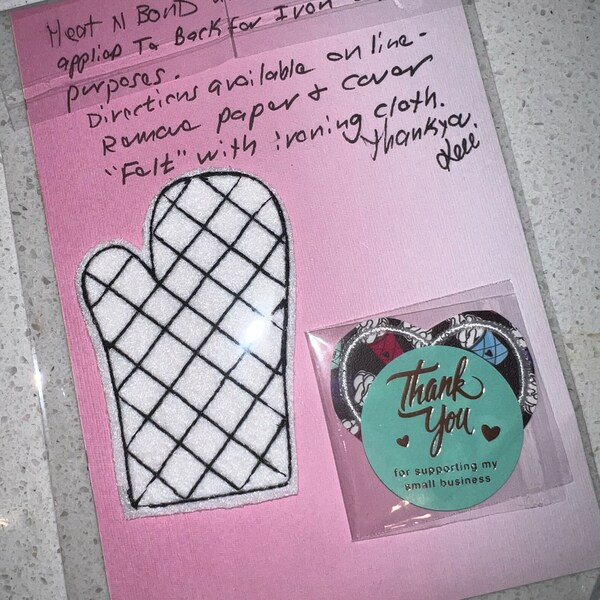 Heat N Bond
applied To Back for Iron
purposes.
Directions available online-
Remove paper & cover
"Felt" with ironing cloth.
Thankyou
Thank
You
for supporting my
small business